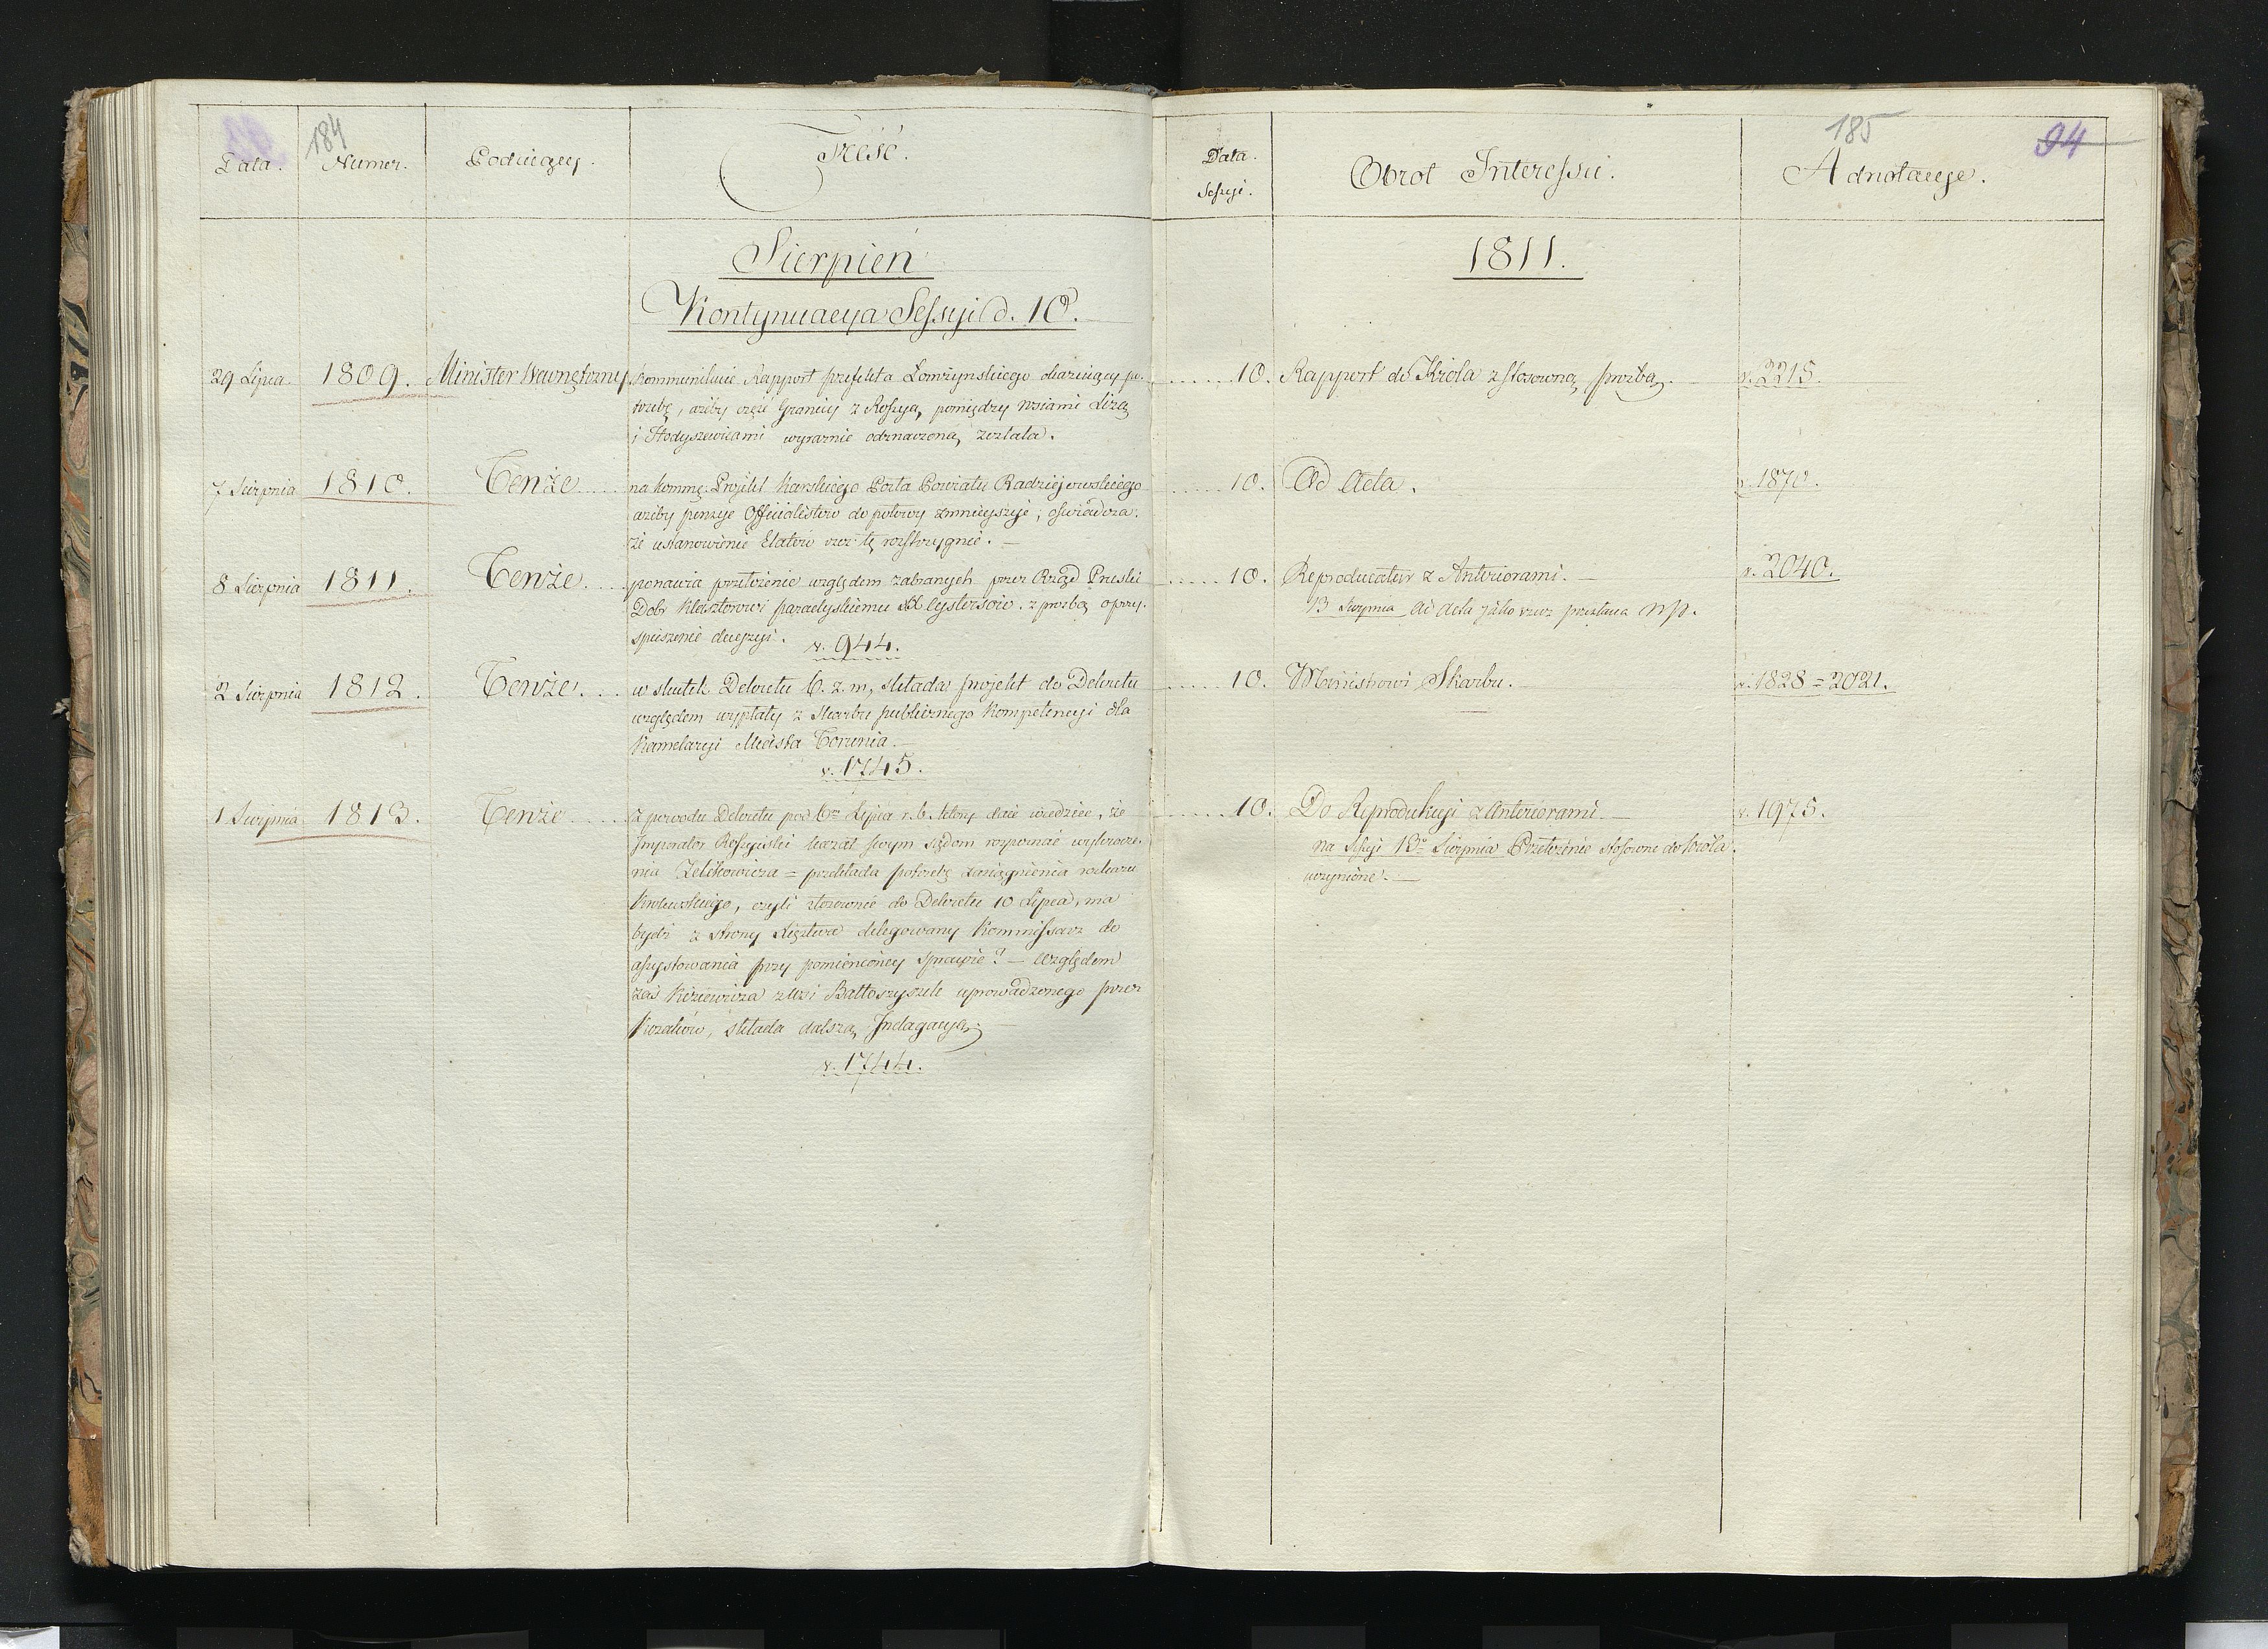 184
Data. Numer. Podaiący. Treść.
Sierpień
Kontynuacya Sessyi d. 10.
29 Lipca. 1809. Minister Wewnętrzny kommunikuie Rapport prefekta Łomżynskiego okazuiący po-
trzebę, ażeby część Granicy z Rossyą, pomiędzy wsiami Lizą
i Hodyszewicami wyraznie odznaczoną została.
7 Sierpnia 1810. Tenże na kommę: Projekt Karskiego Posła Powiatu Radziejowskiego
ażeby pensye Officialistów do połowy zmnieyszyć, oświadcza,
że ustanowienie Etatow rzecz tę rozstrzygnie. —
8 Sierpnia 1811. Tenże ponawia przełożenie względem zabranych przez Rząd Pruski
Dobr Klasztorowi paradyskiemu XX Cystersow. z prozbą o przy-
spieszenie decyzyi. v. 944.
2 Sierpnia 1812. Tenże. w skutek Dekretu 6. z. m, składa projekt do Dekretu
względem wypłaty z Skarbu publicznego Kompetencyi dla
Kamelaryi Miasta Torunia.
v. 1745.
1 Sierpnia 1813. Tenże z powodu Dekretu pod 6m Lipca r. b. ktory daie wiedzieć, że
Imperator Rossyiski kazał swym sądom rozpoznać wykrocze-
nia Zelikowicza = przekłada potrzebę zasiągnienia rozkazu
Krolewskiego, czyli stosownie do Dekretu 10 Lipca, ma
bydź z strony Xięztwa delegowany Kommissarz do
assystowania przy pomienioney sprawie? — Względem
zaś Kiziewicza z wsi Battoszyszek uprowadzonego przez
Kozaków, składa dalszą Indagacyą.
v. 1744.
185 94
Data Sessyi. Obrot Interessu. Adnotacye.
1811.
10. Rapport do Krola z stosowną prozbą. v. 2215.
10. Ad Acta. v. 1870.
10. Reproducatur z Anteriorami. — v. 2040.
13 Sierpnia ad acta jako rzecz przeszła
10. Ministrowi Skarbu. v. 1828 = 2021.
10. Do Reprodukcyi z Anteriorami — v. 1975.
na Sessyi 13o Sierpnia Przełożenie stosowne do Krola
uczynione. —